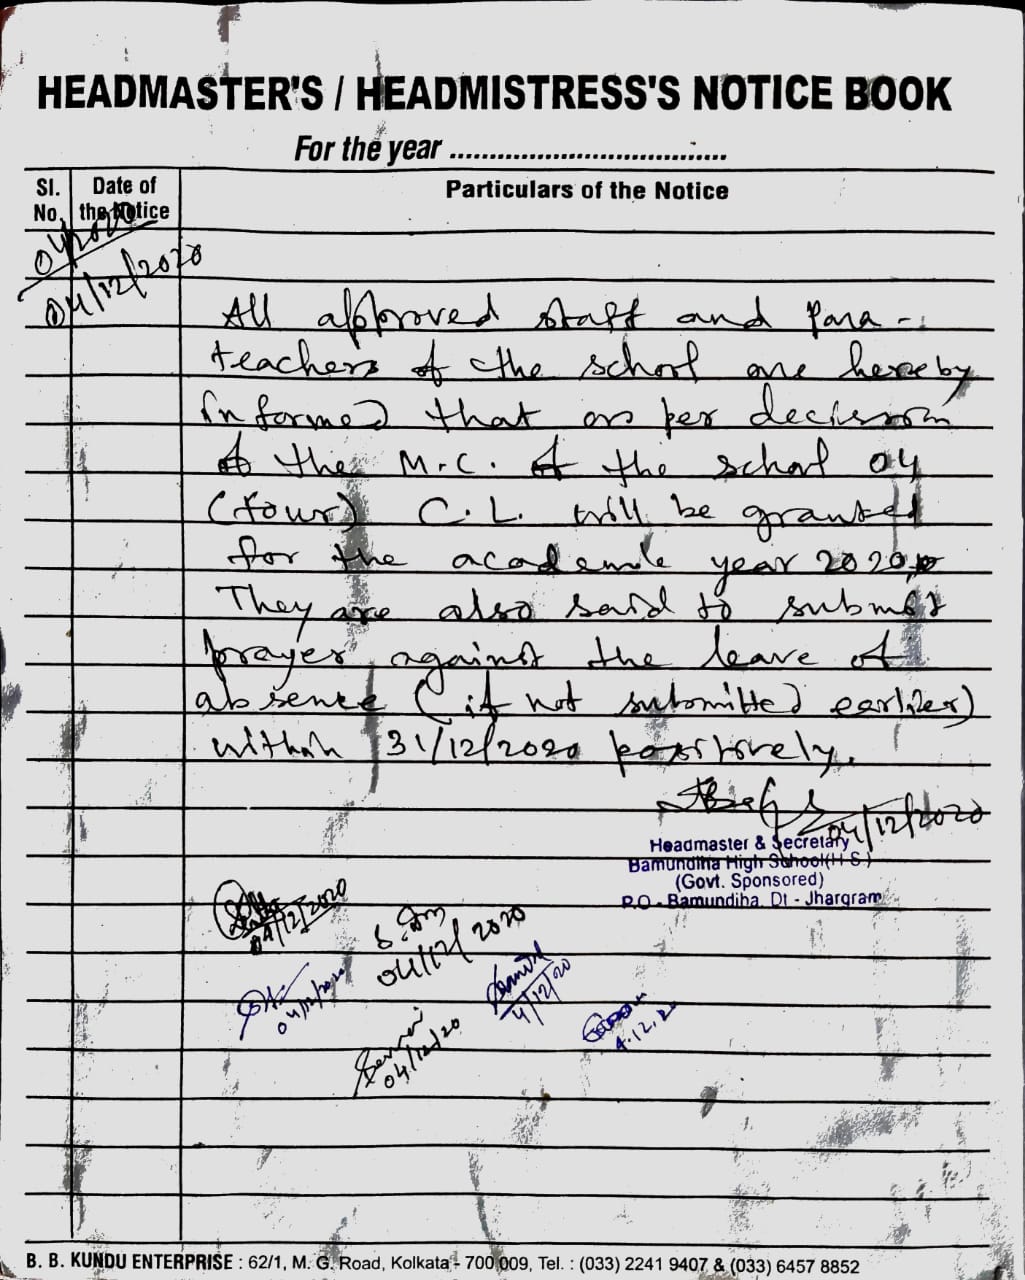 HEADMASTER'S / HEADMISTRESS'S NOTICE BOOK
For the year ..................................
Sl. No.
Date of the Notice
Particulars of the Notice
04/2020
04/12/2020
All approved staff and Para-
teachers of the school are hereby
informed that as per decission
of the M.C. of the school 04
(four) C.L. will be granted
for the academic year 2020.
They are also said to submit
prayer against the leave of
absence (if not submitted earlier)
within 31/12/2020 positively.
04/12/2020
Headmaster & Secretary
Bamundiha High School(H.S.)
(Govt. Sponsored)
P.O - Bamundiha, Dt - Jhargram
04/12/2020
04/12/2020
04/12/2020
4/12/20
4.12.20
04/12/20
B. B. KUNDU ENTERPRISE : 62/1, M. G. Road, Kolkata - 700 009, Tel. : (033) 2241 9407 & (033) 6457 8852